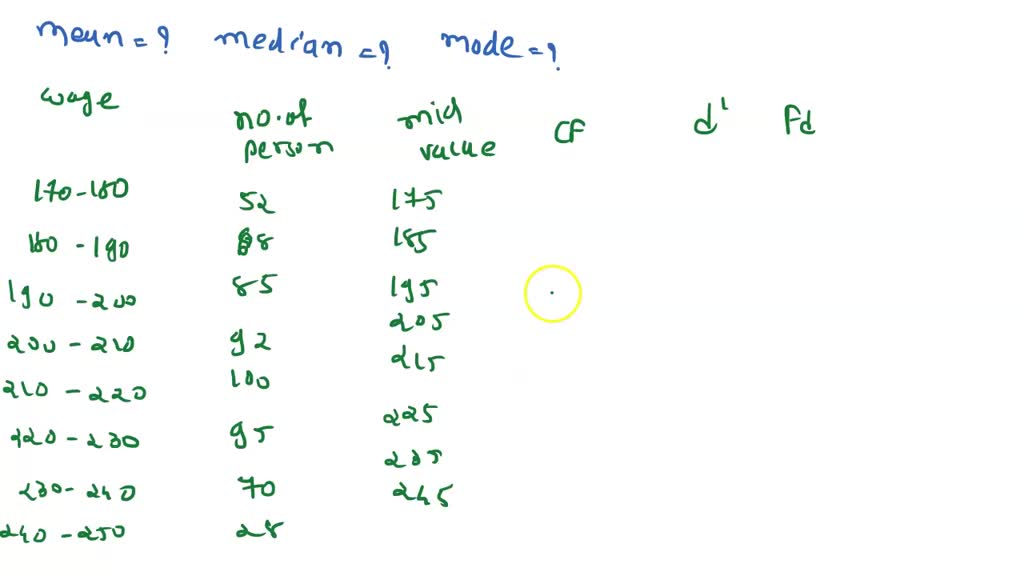 mean = ? median = ? mode = ?
wage no. of person mid value CF d' Fd
170 - 180 52 175
180 - 190 185
190 - 200 85 195
200 - 210 92 205
210 - 220 100 215
220 - 230 95 225
230 - 240 70 235
240 - 250 28 245